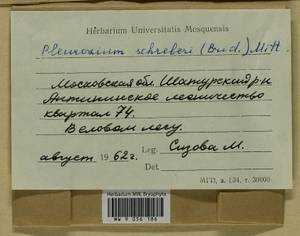 Herbarium Universitatis Mosquensis
Pleurozium schreberi (Brid.) Mitt.
Московская обл. Шатурский р-н
Антипинское лесничество
квартал 74.
В еловом лесу.
август 1962 г. Leg. Сизова М.
Det.
МГП, з. 134, т. 30000
Herbarium MW, Bryophyta
MW 9 056 186